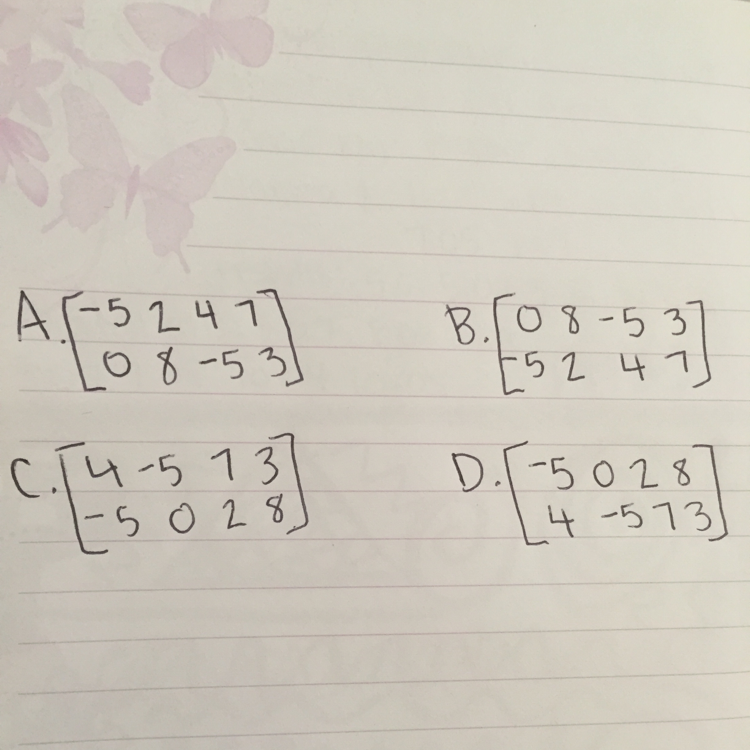 A. [-5 2 4 7
0 8 -5 3]
B. [0 8 -5 3
-5 2 4 7]
C. [4 -5 7 3
-5 0 2 8]
D. [-5 0 2 8
4 -5 7 3]